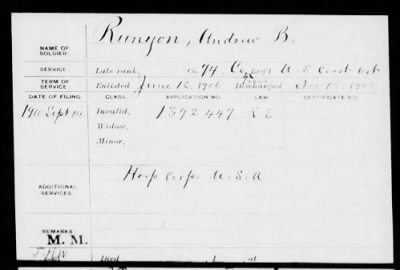 NAME OF SOLDIER: Runyon, Andrew B.
SERVICE: Late rank, Co. 74, Co Reg't U.S. Coast Art
TERM OF SERVICE: Enlisted June 12, 190 Discharged Nov 190
DATE OF FILING. CLASS. APPLICATION NO. LAW. CERTIFICATE NO.
Sept Invalid, 1392447
Widow,
Minor,
ADDITIONAL SERVICES: Hosp Corps U.S.A
REMARKS:
M. M.
Died